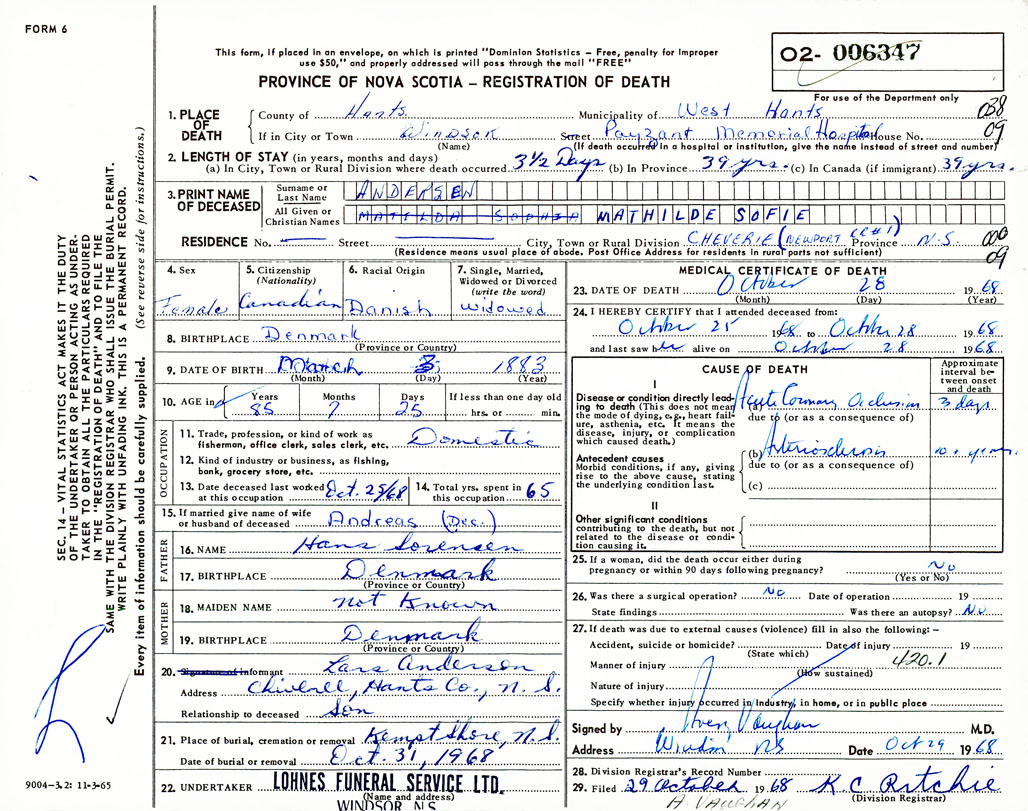 FORM 6
O2- 006347
This form, if placed in an envelope, on which is printed "Dominion Statistics – Free, penalty for improper
use $50," and properly addressed will pass through the mail "FREE"
PROVINCE OF NOVA SCOTIA – REGISTRATION OF DEATH
For use of the Department only
1. PLACE OF DEATH
County of Hants. Municipality of West Hants 038
If in City or Town Windsor Street Payzant Memorial Hospital House No. 09
(Name) (If death occurred in a hospital or institution, give the name instead of street and number)
2. LENGTH OF STAY (in years, months and days)
(a) In City, Town or Rural Division where death occurred 3½ Days (b) In Province 39 yrs. (c) In Canada (if immigrant) 39 yrs.
3. PRINT NAME OF DECEASED
Surname or Last Name ANDERSEN
All Given or Christian Names MATILDA SOPHIA MATHILDE SOFIE
RESIDENCE No. Street City, Town or Rural Division CHEVERIE (NEWPORT (RR#1) Province N.S.
(Residence means usual place of abode. Post Office Address for residents in rural parts not sufficient) 09
4. Sex Female
5. Citizenship (Nationality) Canadian
6. Racial Origin Danish
7. Single, Married, Widowed or Divorced (write the word) Widowed
8. BIRTHPLACE Denmark
(Province or Country)
9. DATE OF BIRTH March 3 1883
(Month) (Day) (Year)
10. AGE in Years Months Days If less than one day old
85 7 25 hrs. or min.
OCCUPATION
11. Trade, profession, or kind of work as
fishermen, office clerk, sales clerk, etc. Domestic
12. Kind of industry or business, as fishing,
bank, grocery store, etc.
13. Date deceased last worked at this occupation Oct. 25/68
14. Total yrs. spent in this occupation 65
15. If married give name of wife
or husband of deceased Andreas (Dec.)
FATHER
16. NAME Hans Sorensen
17. BIRTHPLACE Denmark
(Province or Country)
MOTHER
18. MAIDEN NAME not Known
19. BIRTHPLACE Denmark
(Province or Country)
20. Signature of informant Lars Andersen
Address Hants Co., N.S.
Relationship to deceased Son
21. Place of burial, cremation or removal Kempt Shore, N.S.
Date of burial or removal Oct. 31, 1968
22. UNDERTAKER LOHNES FUNERAL SERVICE LTD.
(Name and address)
WINDSOR, N.S.
MEDICAL CERTIFICATE OF DEATH
23. DATE OF DEATH October 28 1968
(Month) (Day) (Year)
24. I HEREBY CERTIFY that I attended deceased from:
October 25 1968 to October 28 1968
and last saw her alive on October 28 1968
CAUSE OF DEATH
Approximate interval between onset and death
I
Disease or condition directly leading to death (This does not mean the mode of dying, e.g., heart failure, asthenia, etc. It means the disease, injury, or complication which caused death.)
(a) Acute Coronary Occlusion 3 days
due to (or as a consequence of)
Antecedent causes
Morbid conditions, if any, giving rise to the above cause, stating the underlying condition last.
(b) Arteriosclerosis 10+ years.
due to (or as a consequence of)
(c)
II
Other significant conditions
contributing to the death, but not related to the disease or condition causing it.
25. If a woman, did the death occur either during
pregnancy or within 90 days following pregnancy? No
(Yes or No)
26. Was there a surgical operation? No Date of operation 19
State findings Was there an autopsy? No
27. If death was due to external causes (violence) fill in also the following: –
Accident, suicide or homicide? Date of injury 19
(State which) 420.1
Manner of injury
(How sustained)
Nature of injury
Specify whether injury occurred in industry, in home, or in public place
Signed by Vaughan M.D.
Address Windsor NS Date Oct 29 1968
28. Division Registrar's Record Number
29. Filed 29 October 1968 K C Ritchie
A. VAUGHAN (Division Registrar)
SEC. 14 – VITAL STATISTICS ACT MAKES IT THE DUTY
OF THE UNDERTAKER OR PERSON ACTING AS UNDER-
TAKER TO OBTAIN ALL THE PARTICULARS REQUIRED
IN THE "REGISTRATION OF DEATH" AND TO FILE THE
SAME WITH THE DIVISION REGISTRAR WHO SHALL ISSUE THE BURIAL PERMIT.
WRITE PLAINLY WITH UNFADING INK. THIS IS A PERMANENT RECORD.
Every item of information should be carefully supplied. (See reverse side for instructions.)
9004-3.2: 11-3-65